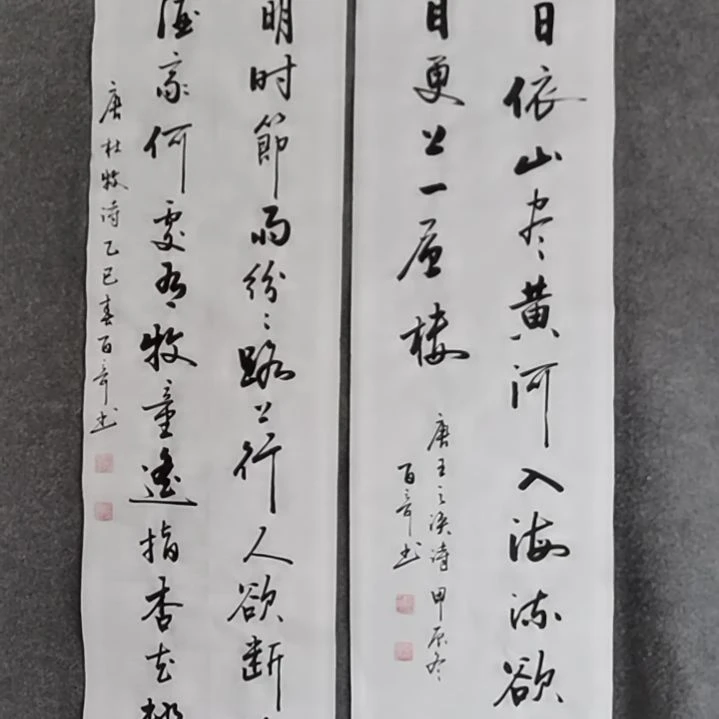 日依山尽黄河入海流欲
目更上一层楼
唐王之涣诗甲辰冬
百奇书
明时節雨纷〻路上行人欲断
酒家何處有牧童遙指杏花
唐杜牧诗乙巳春百奇书